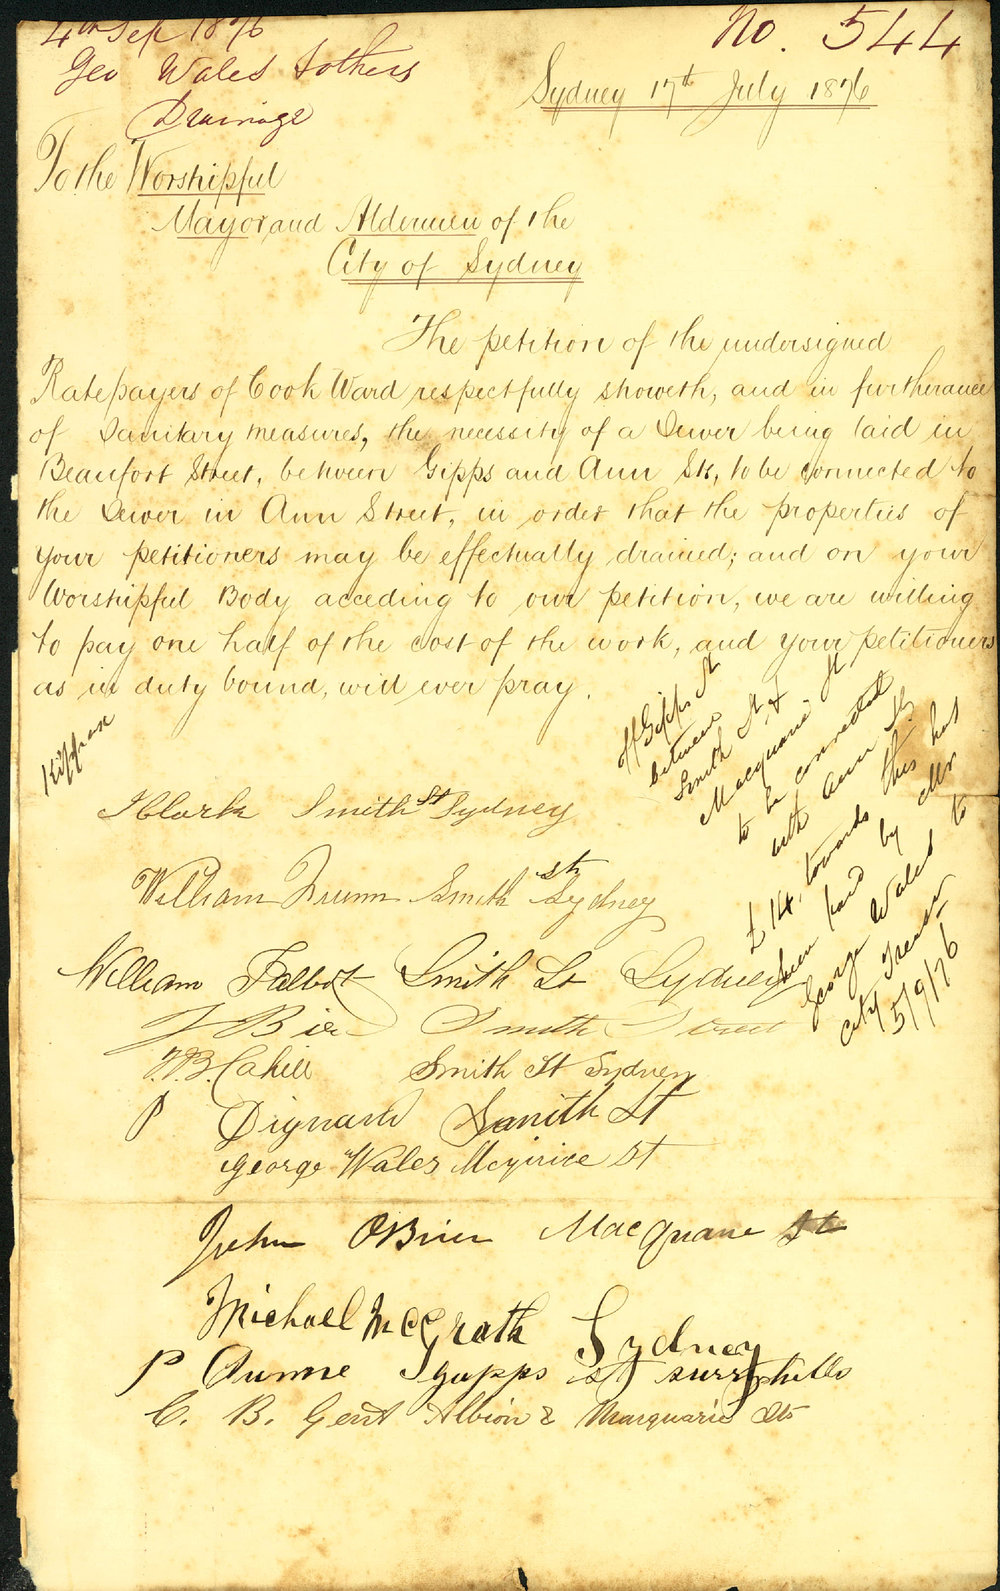 4th Sep 1876
No. 544
Geo Wales & others
Drainage
Sydney 17th July 1876
To the Worshipful
Mayor and Aldermen of the
City of Sydney
The petition of the undersigned
Ratepayers of Cook Ward respectfully showeth, and in furtherance
of Sanitary measures, the necessity of a Sewer being laid in
Beaufort Street, between Gipps and Ann Sts, to be connected to
the Sewer in Ann Street, in order that the properties of
your petitioners may be effectually drained; and on your
Worshipful Body acceding to our petition, we are willing
to pay one half of the cost of the work, and your petitioners
as in duty bound, will ever pray.
Kippax
off Gipps St
between
Smith St &
Macquarie St
to be connected
with Ann St
£14, towards this has
been paid by Mr
George Wales to
City Treasr
5/9/76
J Clark Smith St Sydney
William Smith St Sydney
William Talbot Smith St Sydney
J Smith Street
J.B. Cahill Smith St Sydney
P Dignam Smith St
George Wales St
John OBrien MacQuane St
Michael McGrath Sydney
P Dunne gupps st surry hills
C. B. Gent Albion & Macquarie Sts